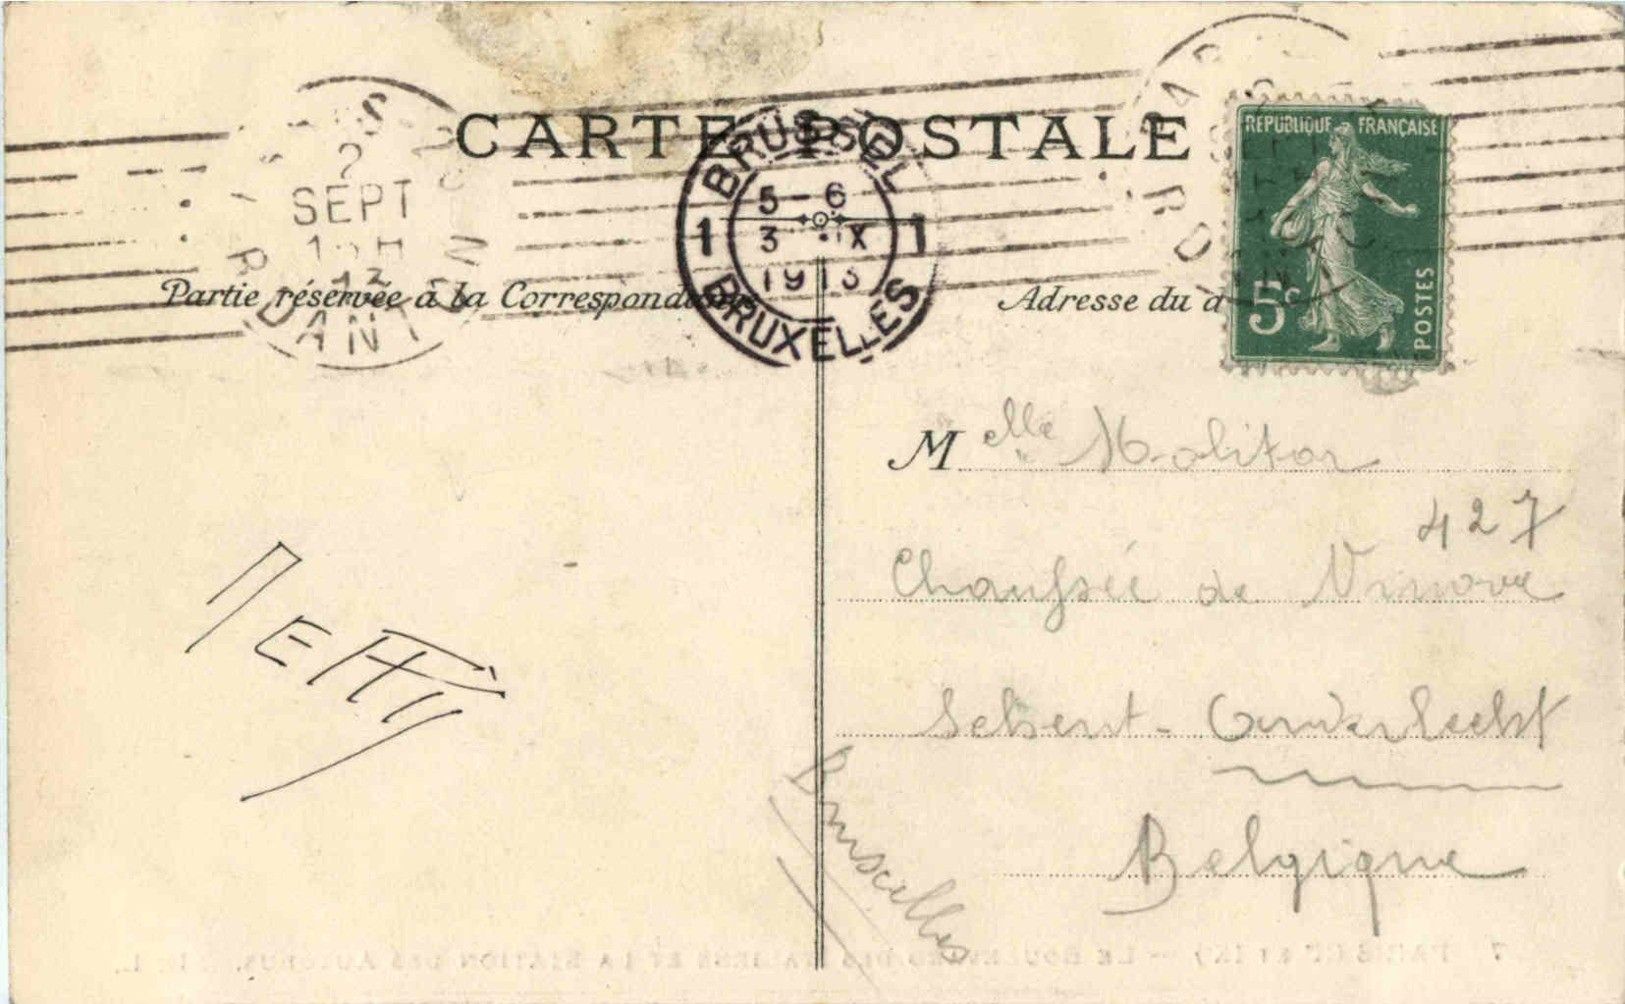 CARTE POSTALE
REPUBLIQUE FRANÇAISE
5c
POSTES
2
SEPT
13
R. DANTON
BRUSSEL
5-6
1 3 · IX 1
1913
BRUXELLES
Partie réservée à la Correspondance
Adresse du d
Melle Molitor
427
Chaussée de Ninove
Scheut-Anderlecht
Bruxelles
Belgique